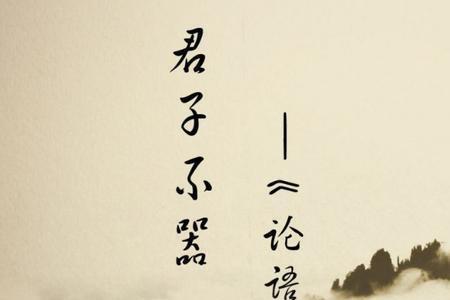 君子不器
—《论语